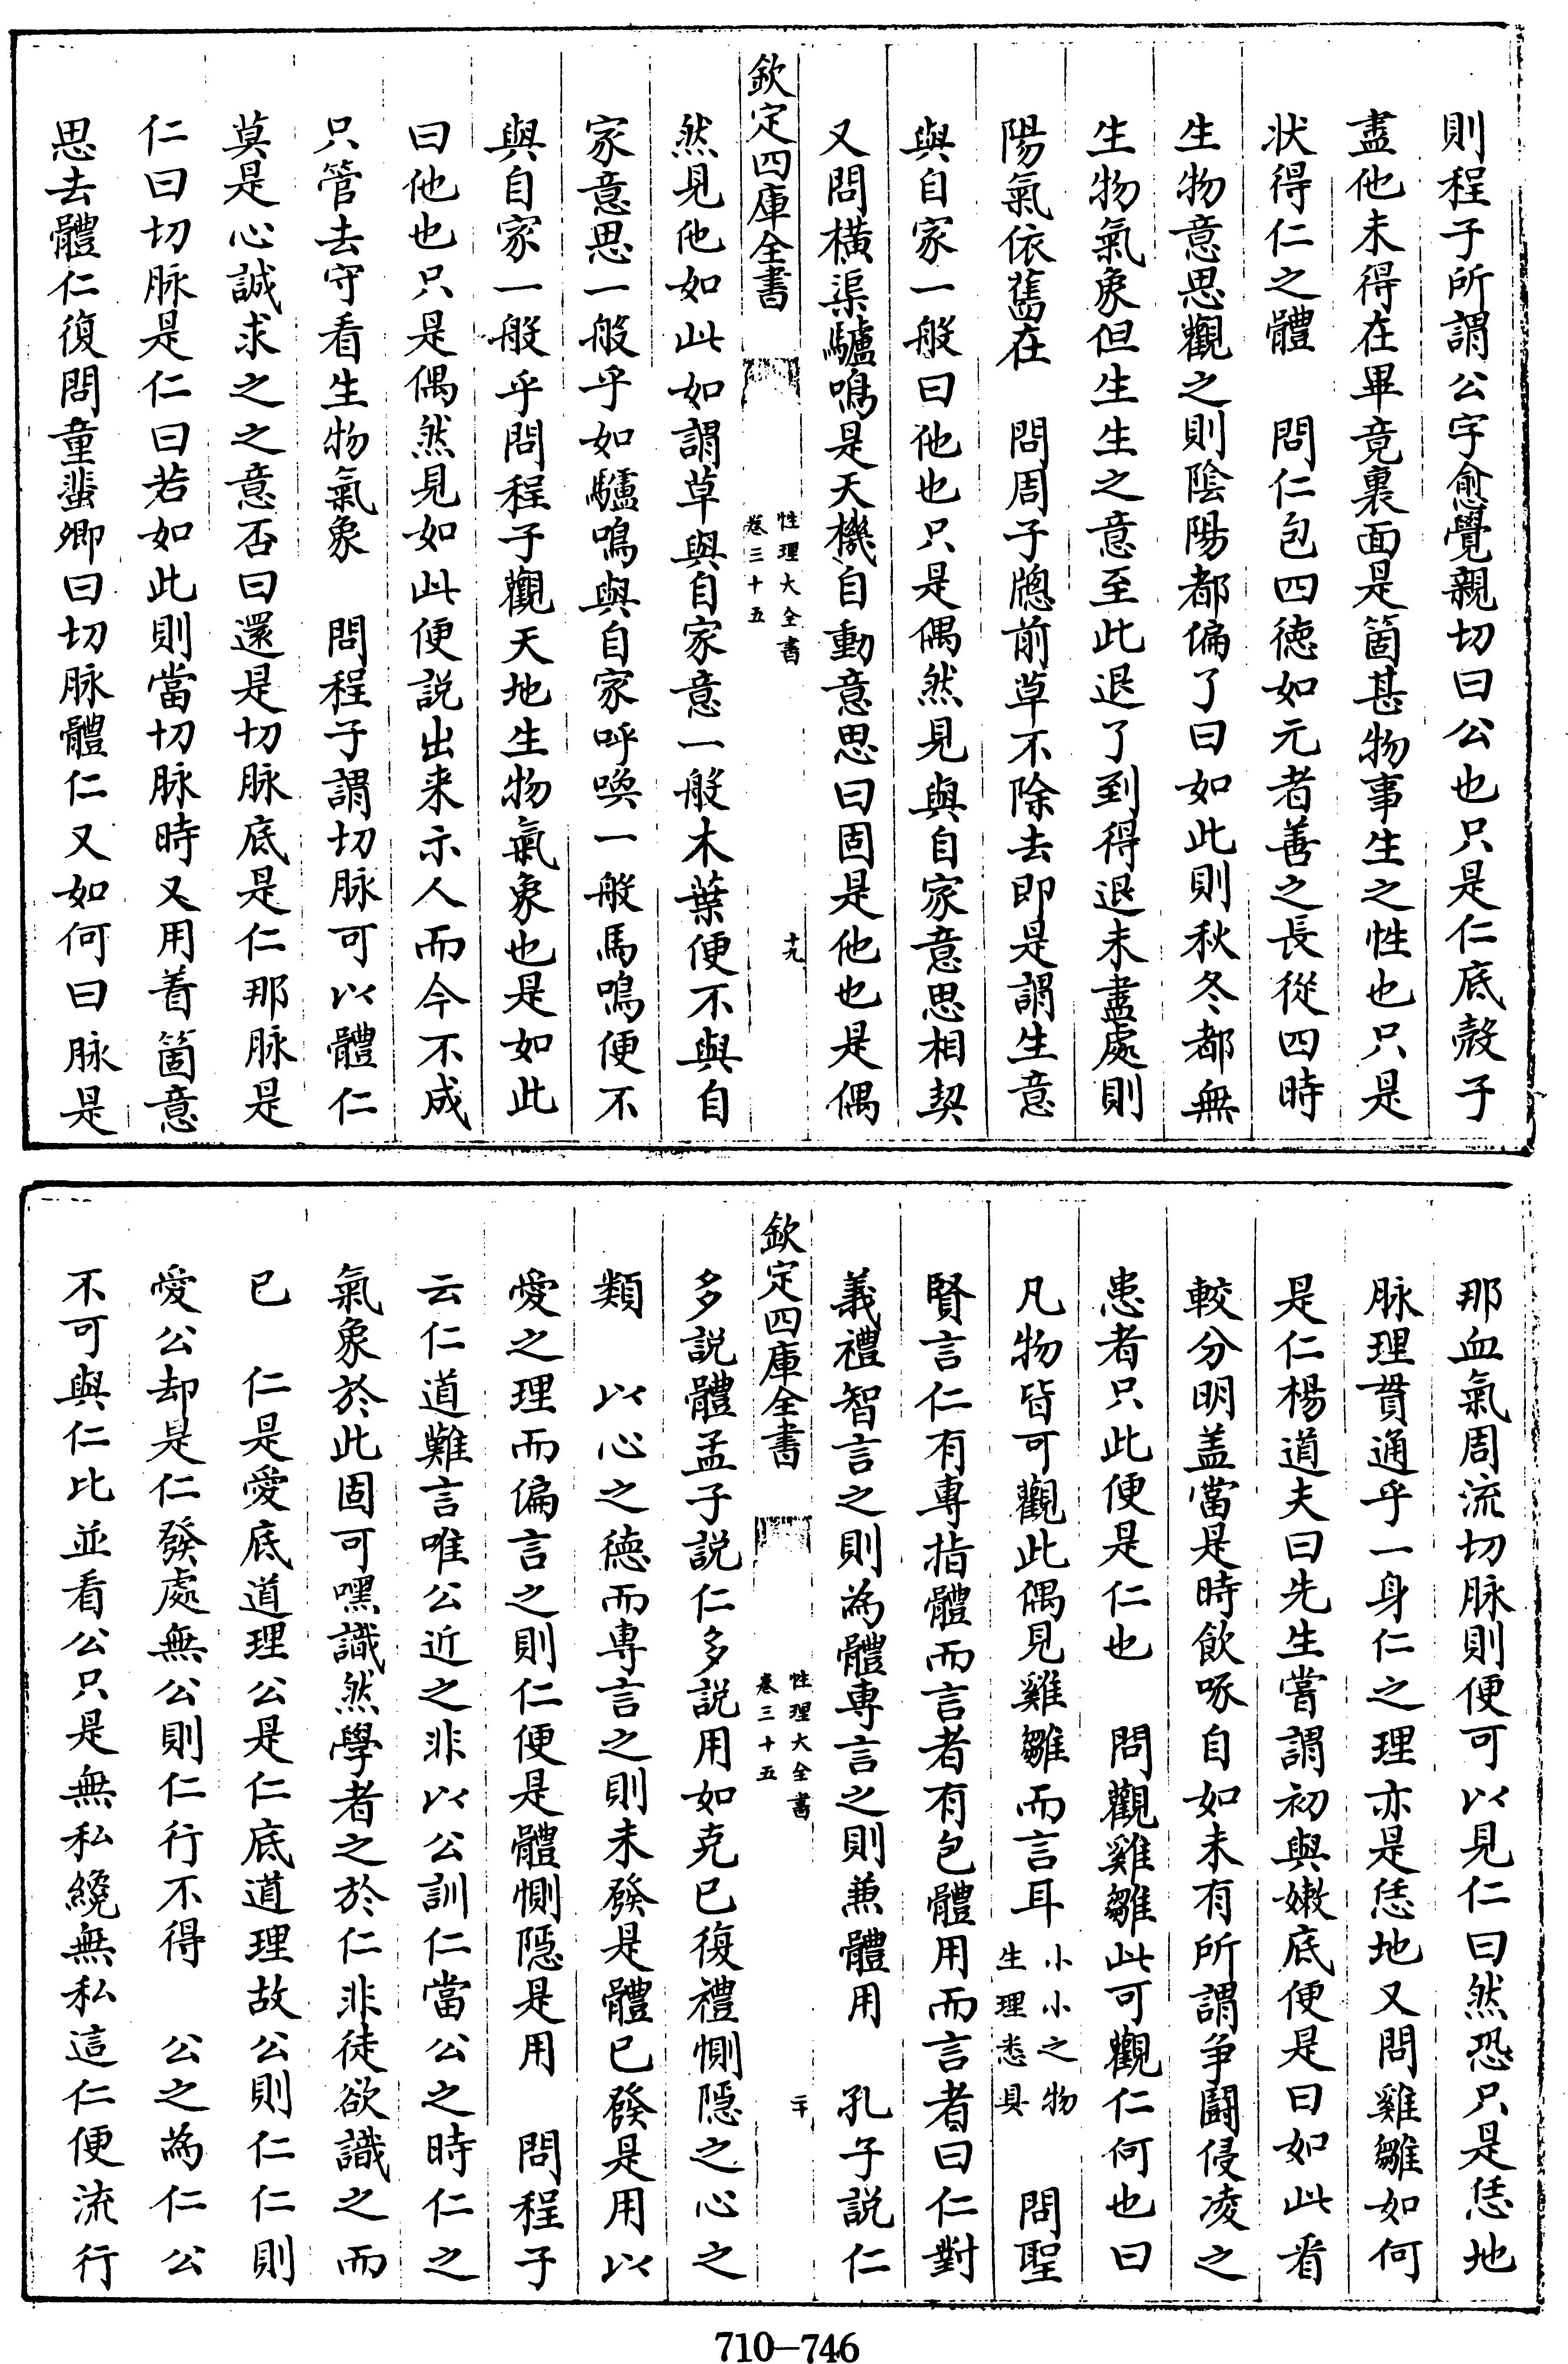 則程子所謂公字愈覺親切曰公也只是仁底殼子
盡他未得在畢竟裏面是箇甚物事生之性也只是
狀得仁之體　問仁包四徳如元者善之長從四時
生物意思觀之則隂陽都偏了曰如此則秋冬都無
生物氣象但生生之意至此退了到得退未盡處則
陽氣依舊在　問周子牕前草不除去即是謂生意
與自家一般曰他也只是偶然見與自家意思相契
又問橫渠驢鳴是天機自動意思曰固是他也是偶
欽定四庫全書
性理大全書
卷三十五
十九
然見他如此如謂草與自家意一般木葉便不與自
家意思一般乎如驢鳴與自家呼喚一般馬鳴便不
與自家一般乎問程子觀天地生物氣象也是如此
曰他也只是偶然見如此便説出来示人而今不成
只管去守看生物氣象　問程子謂切脉可以體仁
莫是心誠求之之意否曰還是切脉底是仁那脉是
仁曰切脉是仁曰若如此則當切脉時又用着箇意
思去體仁復問童蜚卿曰切脉體仁又如何曰脉是
那血氣周流切脉則便可以見仁曰然恐只是恁地
脉理貫通乎一身仁之理亦是恁地又問雞雛如何
是仁楊道夫曰先生嘗謂初與嫩底便是曰如此看
較分明盖當是時飲啄自如未有所謂争鬬侵凌之
患者只此便是仁也　問觀雞雛此可觀仁何也曰
凡物皆可觀此偶見雞雛而言耳小小之物生理悉具　問聖
賢言仁有專指體而言者有包體用而言者曰仁對
義禮智言之則為體専言之則兼體用　孔子説仁
欽定四庫全書
性理大全書
卷三十五
二十
多説體孟子説仁多説用如克已復禮惻隠之心之
類　以心之徳而専言之則未發是體已發是用以
愛之理而偏言之則仁便是體惻隠是用　問程子
云仁道難言唯公近之非以公訓仁當公之時仁之
氣象於此固可嘿識然學者之於仁非徒欲識之而
已　仁是愛底道理公是仁底道理故公則仁仁則
愛公却是仁發處無公則仁行不得　公之為仁公
不可與仁比並看公只是無私纔無私這仁便流行
710—746